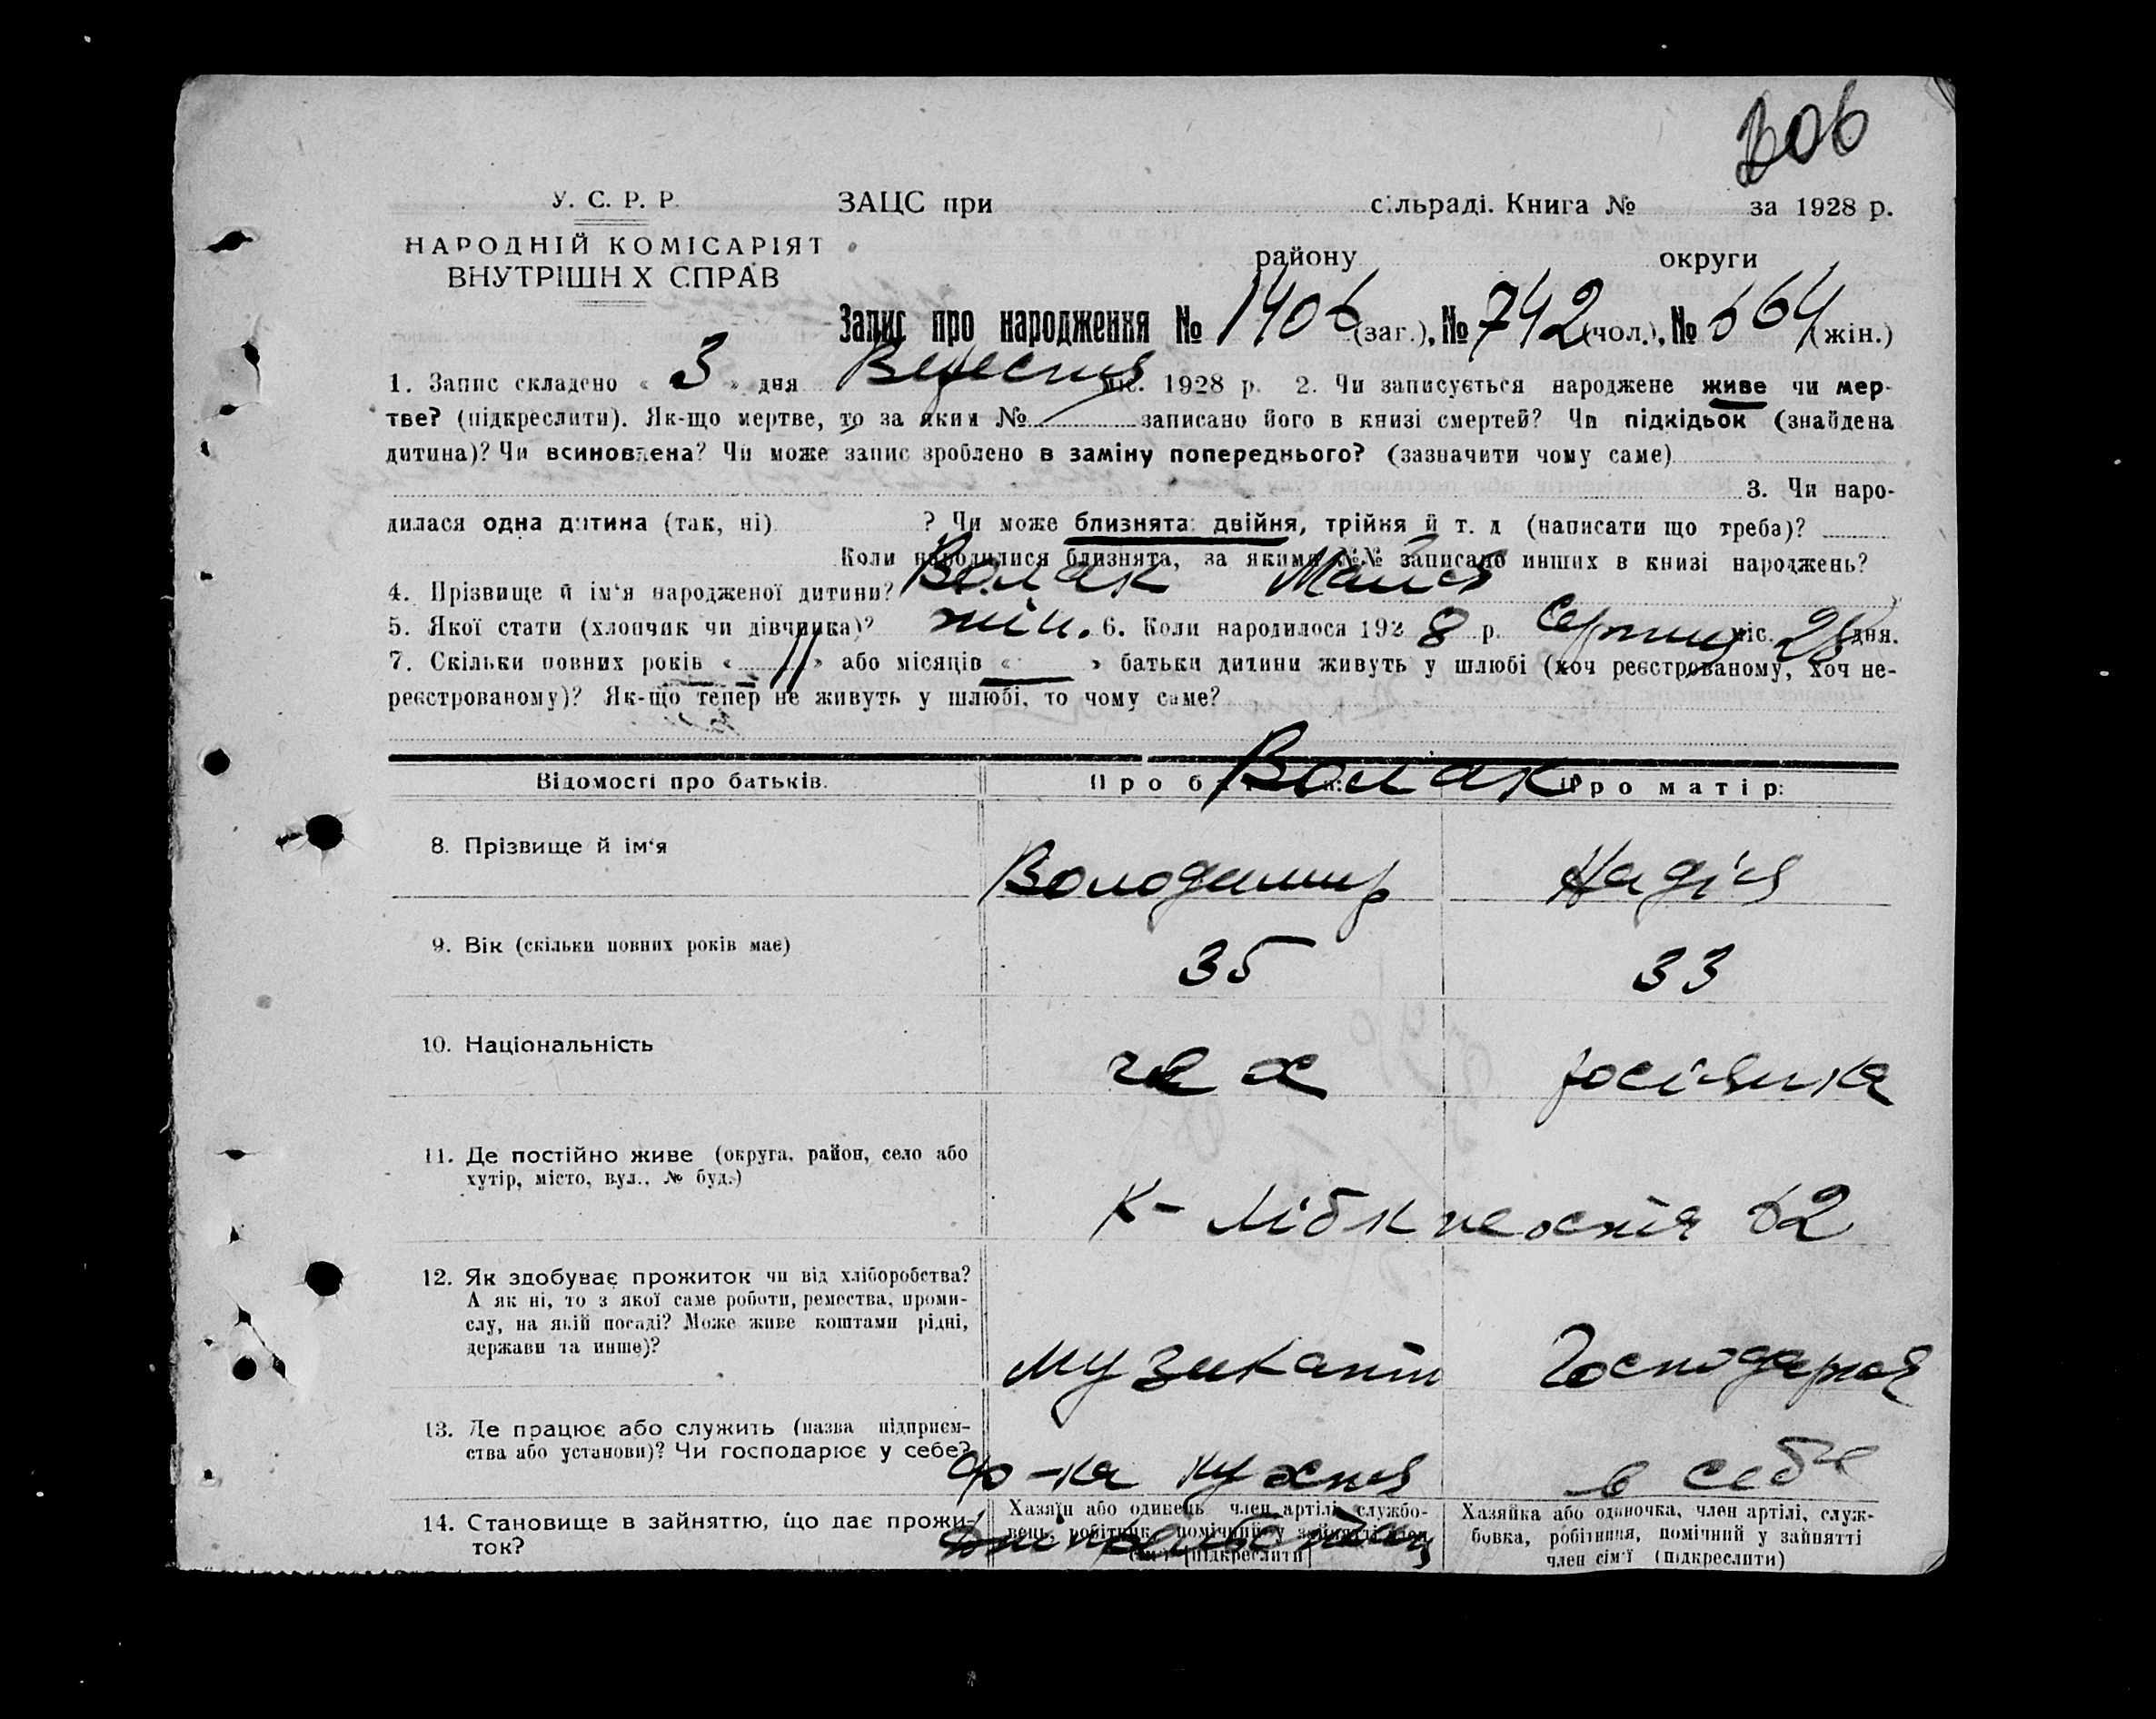 306
У. С. Р. Р.
ЗАЦС при сільраді. Книга № за 1928 р.
НАРОДНІЙ КОМІСАРІЯТ
ВНУТРІШНІХ СПРАВ
району округи
Запис про народження № 1406 (заг.), № 742 (чол.), № 664 (жін.)
1. Запис складено « 3 » дня Вересня міс. 1928 р. 2. Чи записується народжене живе чи мер-
тве? (підкреслити). Як-що мертве, то за яким № записано його в книзі смертей? Чи підкідьок (знайдена
дитина)? Чи всиновлена? Чи може запис зроблено в заміну попереднього? (зазначити чому саме)
3. Чи наро-
дилася одна дитина (так, ні) ? Чи може близнята: двійня, трійня й т. д (написати що треба)?
Коли народилися близнята, за якими №№ записано инших в книзі народжень?
4. Прізвище й ім'я народженої дитини? Волак Майя
5. Якої стати (хлопчик чи дівчинка)? жін. 6. Коли народилося 1928 р. Серпня міс. 28 дня.
7. Скільки повних років « 11 » або місяців « » батьки дитини живуть у шлюбі (хоч реєстрованому, хоч не-
реєстрованому)? Як-що тепер не живуть у шлюбі, то чому саме?
Волак
Відомості про батьків. Про батька: Про матір:
8. Прізвище й ім'я Володимир Надія
9. Вік (скільки повних років має) 35 33
10. Національність чех росіянка
11. Де постійно живе (округа, район, село або
хутір, місто, вул., № буд.)
К-Лібкнехта 62
12. Як здобуває прожиток чи від хліборобства?
А як ні, то з якої саме роботи, ремества, проми-
слу, на якій посаді? Може живе коштами рідні,
держави та инше)?
музикант Господарка
13. Де працює або служить (назва підприєм-
ства або установи)? Чи господарює у себе?
ф-ка кухня в себе
14. Становище в зайняттю, що дає прожи-
ток?
Хазяїн або одинець, член артілі, службо-
вець, робітник, помічний у зайнятті член
сім'ї (підкреслити)
Хазяйка або одиночка, член артілі, служ-
бовка, робітниця, помічний у зайнятті
член сім'ї (підкреслити)